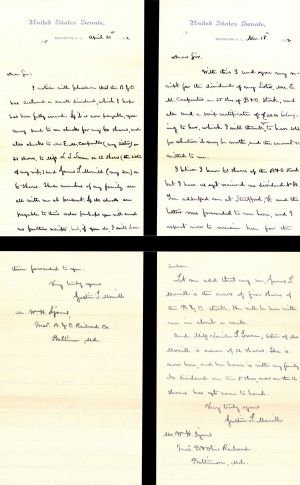 United States Senate,
WASHINGTON, D. C. April 21
Dear Sir:
I notice with pleasure that the B & O
has declared a cash dividend, which I hope
has been fully earned. If it is now payable, you
may send to me checks for my 60 shares, and
also checks to Mrs. E. M. Carpenter (my sister) on
21 shares, to Miss L. L. Swan, on 12 shares (the sister
of my wife) and James S. Morrill (my son) on
5 shares. These members of my family are
all with me at present. If the checks are
payable to their order perhaps you will need
no further order but, if you do, I will have
them forwarded to you.
Very truly yours
Justin S. Morrill
Mr. W. H. Ijams
Treas. B & O Railroad Co.
Baltimore Md.
United States Senate,
WASHINGTON, D. C. Nov. 18
Dear Sir:
With this I send you my re-
ceipt for the dividend of my sister, Mrs. E.
M. Carpenter on 21 shs of B & O stock, and
also send a scrip certificate of
to her, which I will thank
for whatever it may be worth, and the amount re-
mitted to me.
I think I have 60 shares of the B & O stock
but I have as yet received no dividend
I am addressed now at Strafford, Vt. and the
letter was forwarded to me here, and I
expect now to remain here for the
Let me add that my son, James S.
Morrill is the owner of five shares of
the B & O stock. He will be here with
me in about a week.
And Miss Louise L. Swan, sister of Mrs.
Morrill is owner of 12 shares. She is
now here, and her home is with my family.
No dividend on the 5 shs, nor on the 12
shares has yet come to hand.
Very truly yours
Justin S. Morrill
Mr. W. H. Ijams
Treas. B & Ohio Railroad
Baltimore, Md.